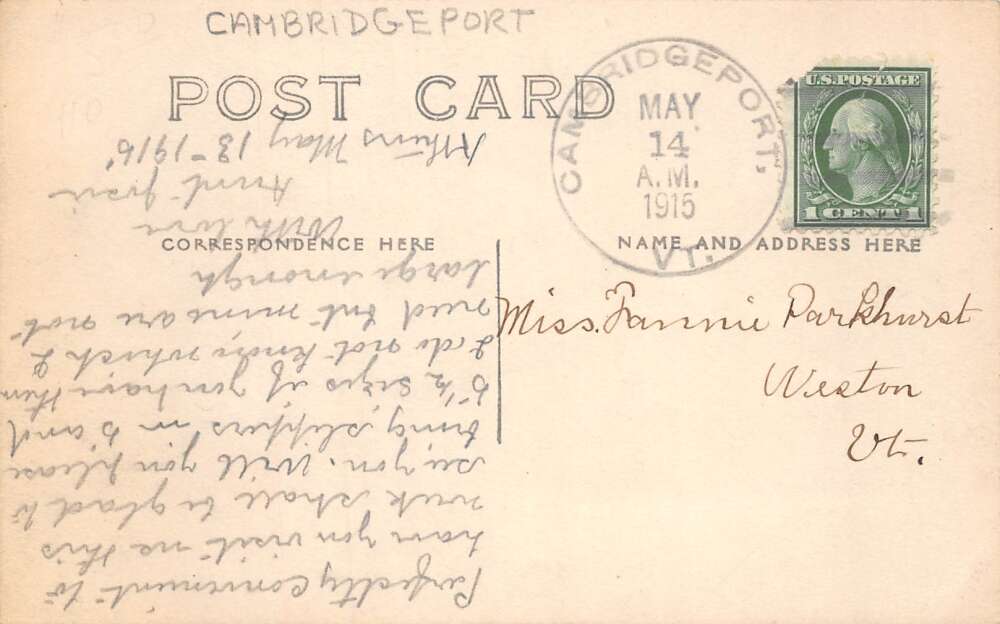 CAMBRIDGEPORT
POST CARD
CAMBRIDGEPORT,
MAY
14
A.M.
1915
VT.
U.S. POSTAGE
1 CENT 1
CORRESPONDENCE HERE
NAME AND ADDRESS HERE
Miss. Fannie Parkhurst
Weston
Vt.
Perfectly convenient to
have you visit me this
week shall be glad to
see you. Will you please
bring slippers in 5 and
5 1/2 sizes if you have them
I do not know which I
need but mine are not
large enough
With love
Aunt
Athens May 13 - 1915